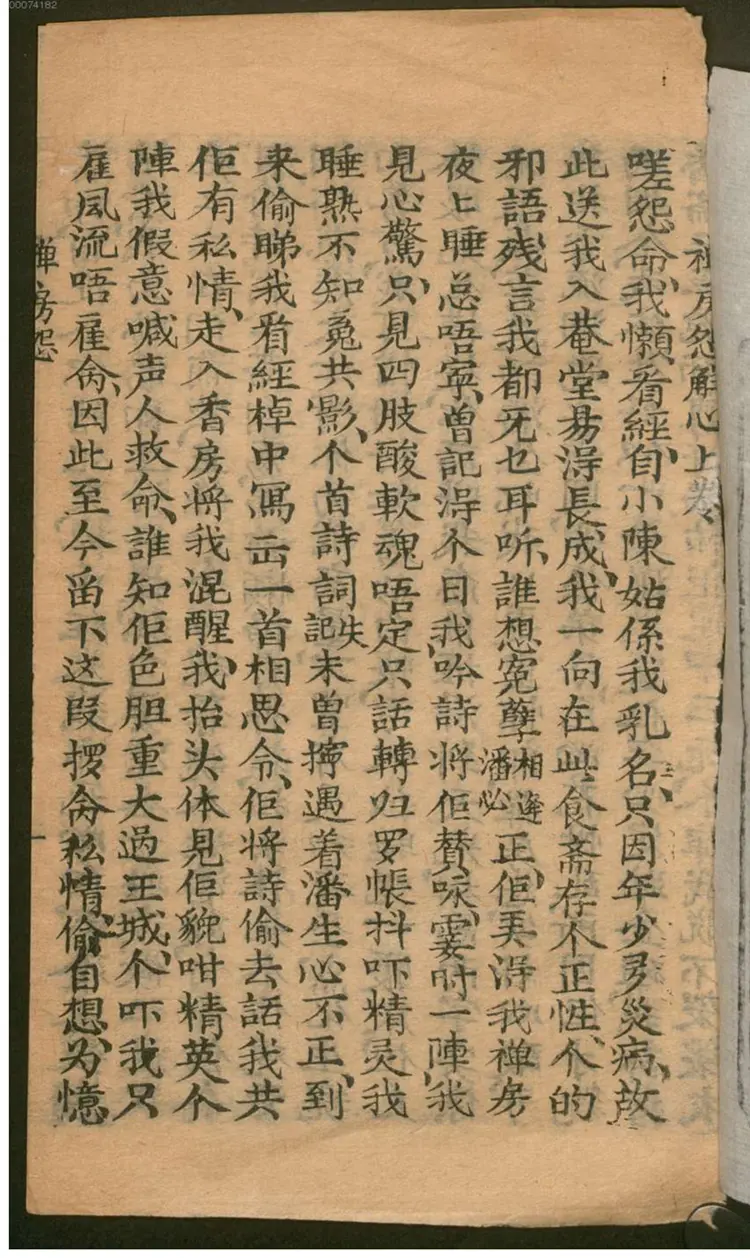 00074182
禅房怨解心上卷
嗟怨命、我懶看經、自小陳姑係我乳名、只因年少多災病、故
此送我入菴堂易淂長成、我一向在此食斋存个正性、个的
邪語残言我都冇乜耳听、誰想冤孽相逢潘必正、佢弄淂我禅房
夜上睡总唔寜、曾記淂个日我吟詩将佢賛咏、霎时一陣、我
見心驚、只見四肢酸軟魂唔定只話轉归罗帳抖吓精灵我
睡熟不知兔共影、个首詩詞記失未曾擰遇着潘生心不正、到
来偷睇我看經棹中寫出一首相思令、佢将詩偷去話我共
佢有私情、走入香房将我混醒、我抬头体見佢貌咁精英个
陣我假意喊声人救命、誰知佢色胆重大过王城、个吓我只
雇风流唔雇命、因此至今畄下这段攞命私情、偷自想、为憶
禅房怨